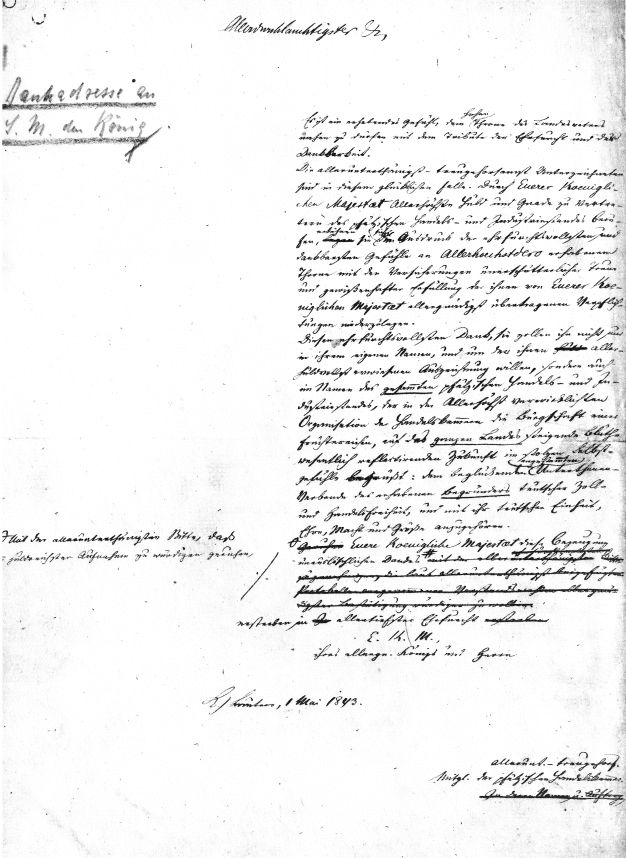 Allerdurchlauchtigster pp,
Dankadresse an
S. M. den König
hohen
Es ist ein erhebendes Gefühl, dem Throne des Landesvaters
nahen zu dürfen mit dem Tribute der Ehrfurcht und der
Dankbarkeit.
Die allerunterthänigst-treugehorsamst Unterzeichneten
sind in diesem glücklichen Falle. Durch Euerer Koenigli-
chen Majestaet Allerhöchste Huld und Gnade zu Vertre-
tern des pfälzischen Handels- und Industriestandes beru-
fen, sie den Ausdruck der ehrfurchtsvollsten und
dankbarsten Gefühle an Allerhoechstdero erhabenem
Throne mit den Versicherungen unerschütterlicher Treue
und gewissenhafter Erfüllung der ihnen von Euerer Koe-
niglichen Majestaet allergnädigst übertragenen Verpflich-
tungen niederzulegen.
Diesen ehrfurchtsvollsten Dank, sie zollen ihn nicht nur
in ihrem eigenen Namen, und um der ihnen aller-
huldvollst erwiesenen Auszeichnung willen, sondern auch
im Namen des gesammten pfälzischen Handels- und In-
dustriestandes, der in der Allerhöchst verwirklichten
Organisation der Handelskammern die Bürgschaft einer
auf des ganzen Landes steigende Blüthe
wesentlich reflectirenden Zukunft im stolzen Selbst-
gefühle begrüßt: dem beglückenden Unterthanen-
Verbande des erhabenen Begründers teutscher Zoll-
und Handelsfreiheit, und mit ihr teutscher Einheit,
Ehre, Macht und Größe anzugehören.
Geruhen Euere Koenigliche Majestaet diese Bezeugung
unauslöschlichen Dankes mit der aller
Mit der allerunterthänigsten Bitte, dass
huldreichster Aufnahme zu würdigen geruhen,
ersterben in allertiefster Ehrfurcht ersterben
E. K. M.,
ihres allergn. Königs und Herrn
K/ lautern, 1 Mai 1843.
allerunt.-treugehors.
Mitgl. der pfälzischen Handelskammer.
In deren Namen u. Auftrag